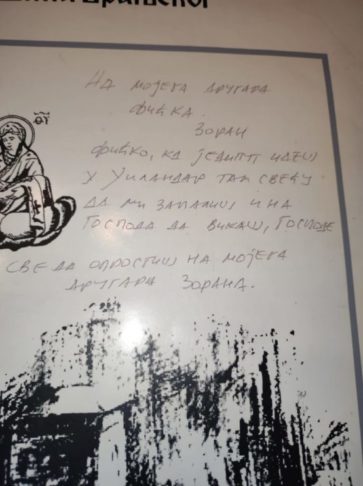 На мојега другара
Фиђка.
Зоран
Фиђко, кд једнпт идеш
у Хиландар там свећу
да ми запалиш и на
Господа да викаш, Господе
све да опростиш на мојега
другара Зорана.